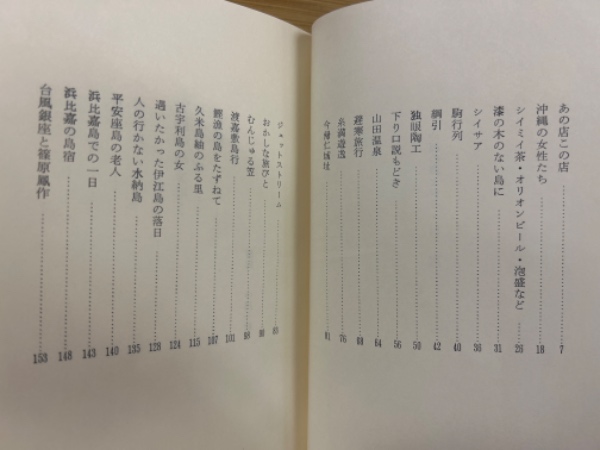 あの店この店 7
沖縄の女性たち 18
シイミイ茶・オリオンビール・泡盛など 26
漆の木のない島に 31
シイサア 36
駒行列 40
綱引 42
独眼陶工 50
下り口説もどき 56
山田温泉 64
避寒旅行 69
糸満遊逸 76
今帰仁城址 81
ジェットストリーム
おかしな旅びと 90
むんじゅる笠 98
渡嘉敷島行 101
鰹漁の島をたずねて 107
久米島紬のふる里 115
古宇利島の女 124
遇いたかった伊江島の落日 128
人の行かない水納島 135
平安座島の老人 140
浜比嘉島での一日 143
浜比嘉の島宿 148
台風銀座と篠原鳳作 153